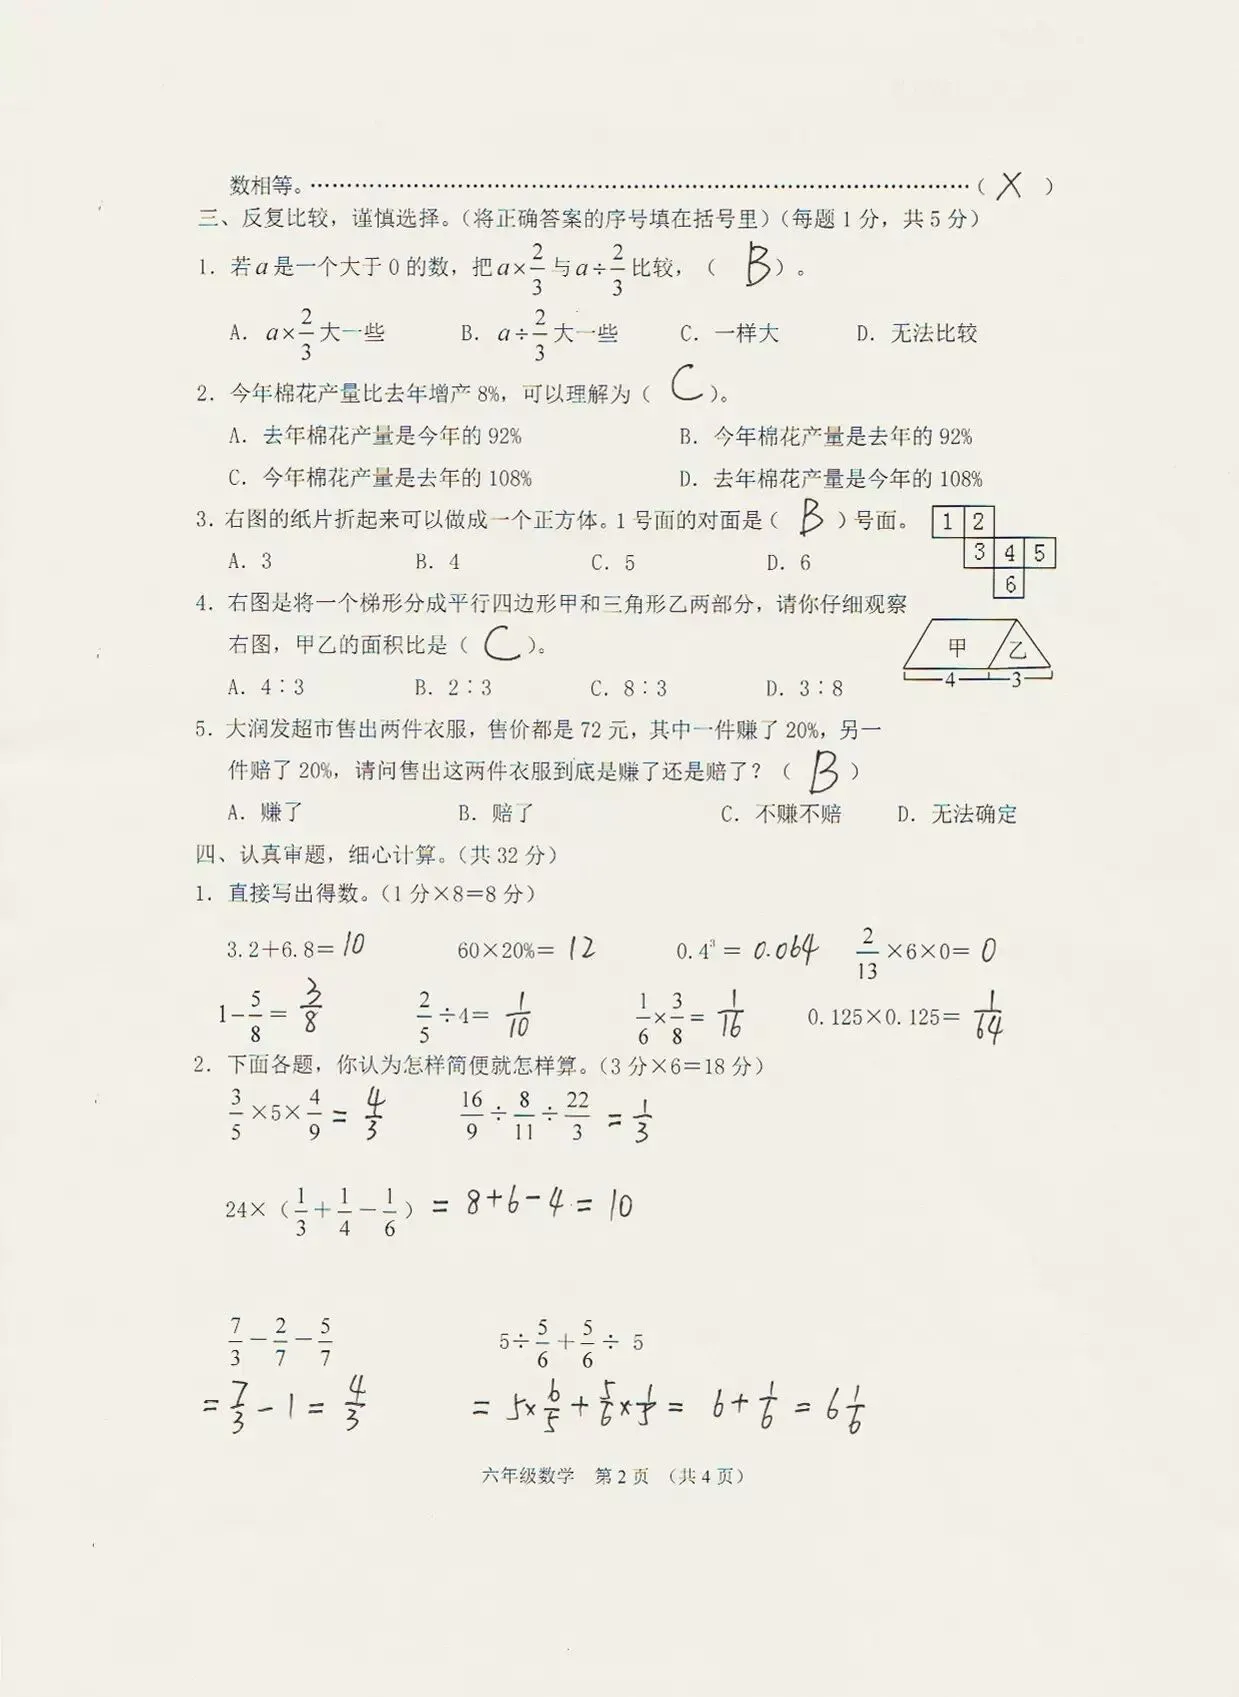 数相等。……………………………………………………………………………( X )
三、反复比较，谨慎选择。（将正确答案的序号填在括号里）（每题1分，共5分）
1. 若a是一个大于0的数，把a×2/3与a÷2/3比较，（ B ）。
A. a×2/3大一些 B. a÷2/3大一些 C. 一样大 D. 无法比较
2. 今年棉花产量比去年增产8%，可以理解为（ C ）。
A. 去年棉花产量是今年的92% B. 今年棉花产量是去年的92%
C. 今年棉花产量是去年的108% D. 去年棉花产量是今年的108%
3. 右图的纸片折起来可以做成一个正方体。1号面的对面是（ B ）号面。
1 2
3 4 5
6
A. 3 B. 4 C. 5 D. 6
4. 右图是将一个梯形分成平行四边形甲和三角形乙两部分，请你仔细观察
右图，甲乙的面积比是（ C ）。
甲 乙
4 3
A. 4∶3 B. 2∶3 C. 8∶3 D. 3∶8
5. 大润发超市售出两件衣服，售价都是72元，其中一件赚了20%，另一
件赔了20%，请问售出这两件衣服到底是赚了还是赔了？（ B ）
A. 赚了 B. 赔了 C. 不赚不赔 D. 无法确定
四、认真审题，细心计算。（共32分）
1. 直接写出得数。（1分×8＝8分）
3.2＋6.8＝10 60×20%＝12 0.4³＝0.064 2/13×6×0＝0
1−5/8＝3/8 2/5÷4＝1/10 1/6×3/8＝1/16 0.125×0.125＝1/64
2. 下面各题，你认为怎样简便就怎样算。（3分×6＝18分）
3/5×5×4/9＝4/3 16/9÷8/11÷22/3＝1/3
24×（1/3＋1/4−1/6）＝8+6−4＝10
7/3−2/7−5/7 5÷5/6＋5/6÷ 5
＝7/3−1＝4/3 ＝5×6/5+5/6×1/5＝6+1/6＝6 1/6
六年级数学 第2页 （共4页）